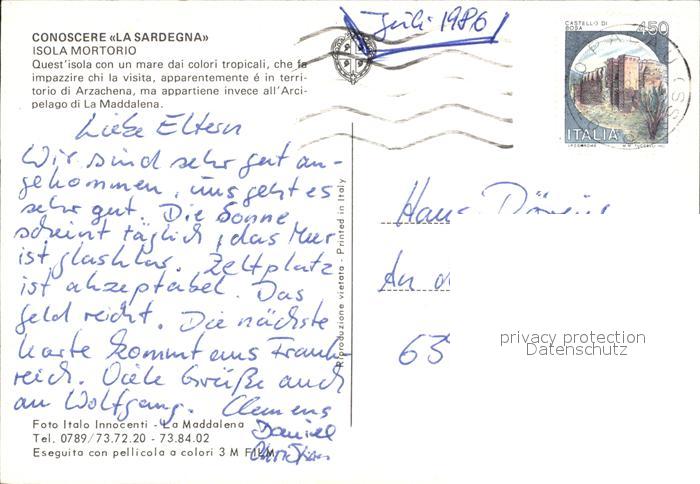 Juli 1986
CONOSCERE «LA SARDEGNA»
ISOLA MORTORIO
Quest'isola con un mare dai colori tropicali, che fa
impazzire chi la visita, apparentemente é in terri-
torio di Arzachena, ma appartiene invece all'Arci-
pelago di La Maddalena.
CASTELLO DI
BOSA
450
ITALIA
Liebe Eltern
Wir sind sehr gut an-
gekommen, uns geht es
sehr gut. Die Sonne
scheint täglich, das Meer
ist glasklar. Zeltplatz
ist akzeptabel. Das
Geld reicht. Die nächste
Karte kommt aus Frank-
reich. Viele Grüße auch
an Wolfgang. Clemens
Daniel
Christian
Riproduzione vietata - Printed in Italy
An
65
privacy protection
Datenschutz
Foto Italo Innocenti - La Maddalena
Tel. 0789/73.72.20 - 73.84.02
Eseguita con pellicola a colori 3 M FILM